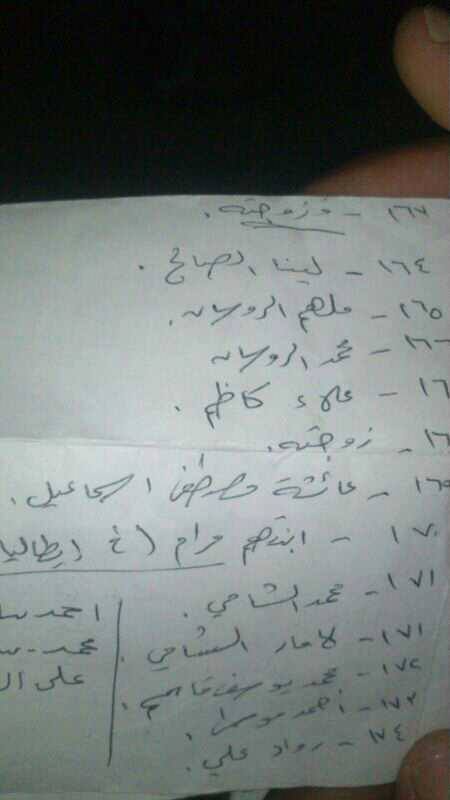 ١٦٧ - وزوجته .
١٦٤ - لينا الصالح .
١٦٥ - ملهم الروسان .
١٦٦ - محمد الروسان
١٦ - علاء كاظم .
١٦ - زوجته .
١٦٩ - عائشة مصطفى اسماعيل .
١٧٠ - ابنتهم مرام (في ايطاليا
١٧١ - محمد الشامي .
١٧١ - لامار الشامي .
١٧٢ - محمد يوسف قاسم .
١٧٣ - احمد موسى .
١٧٤ - رواد علي .
احمد
محمد
على